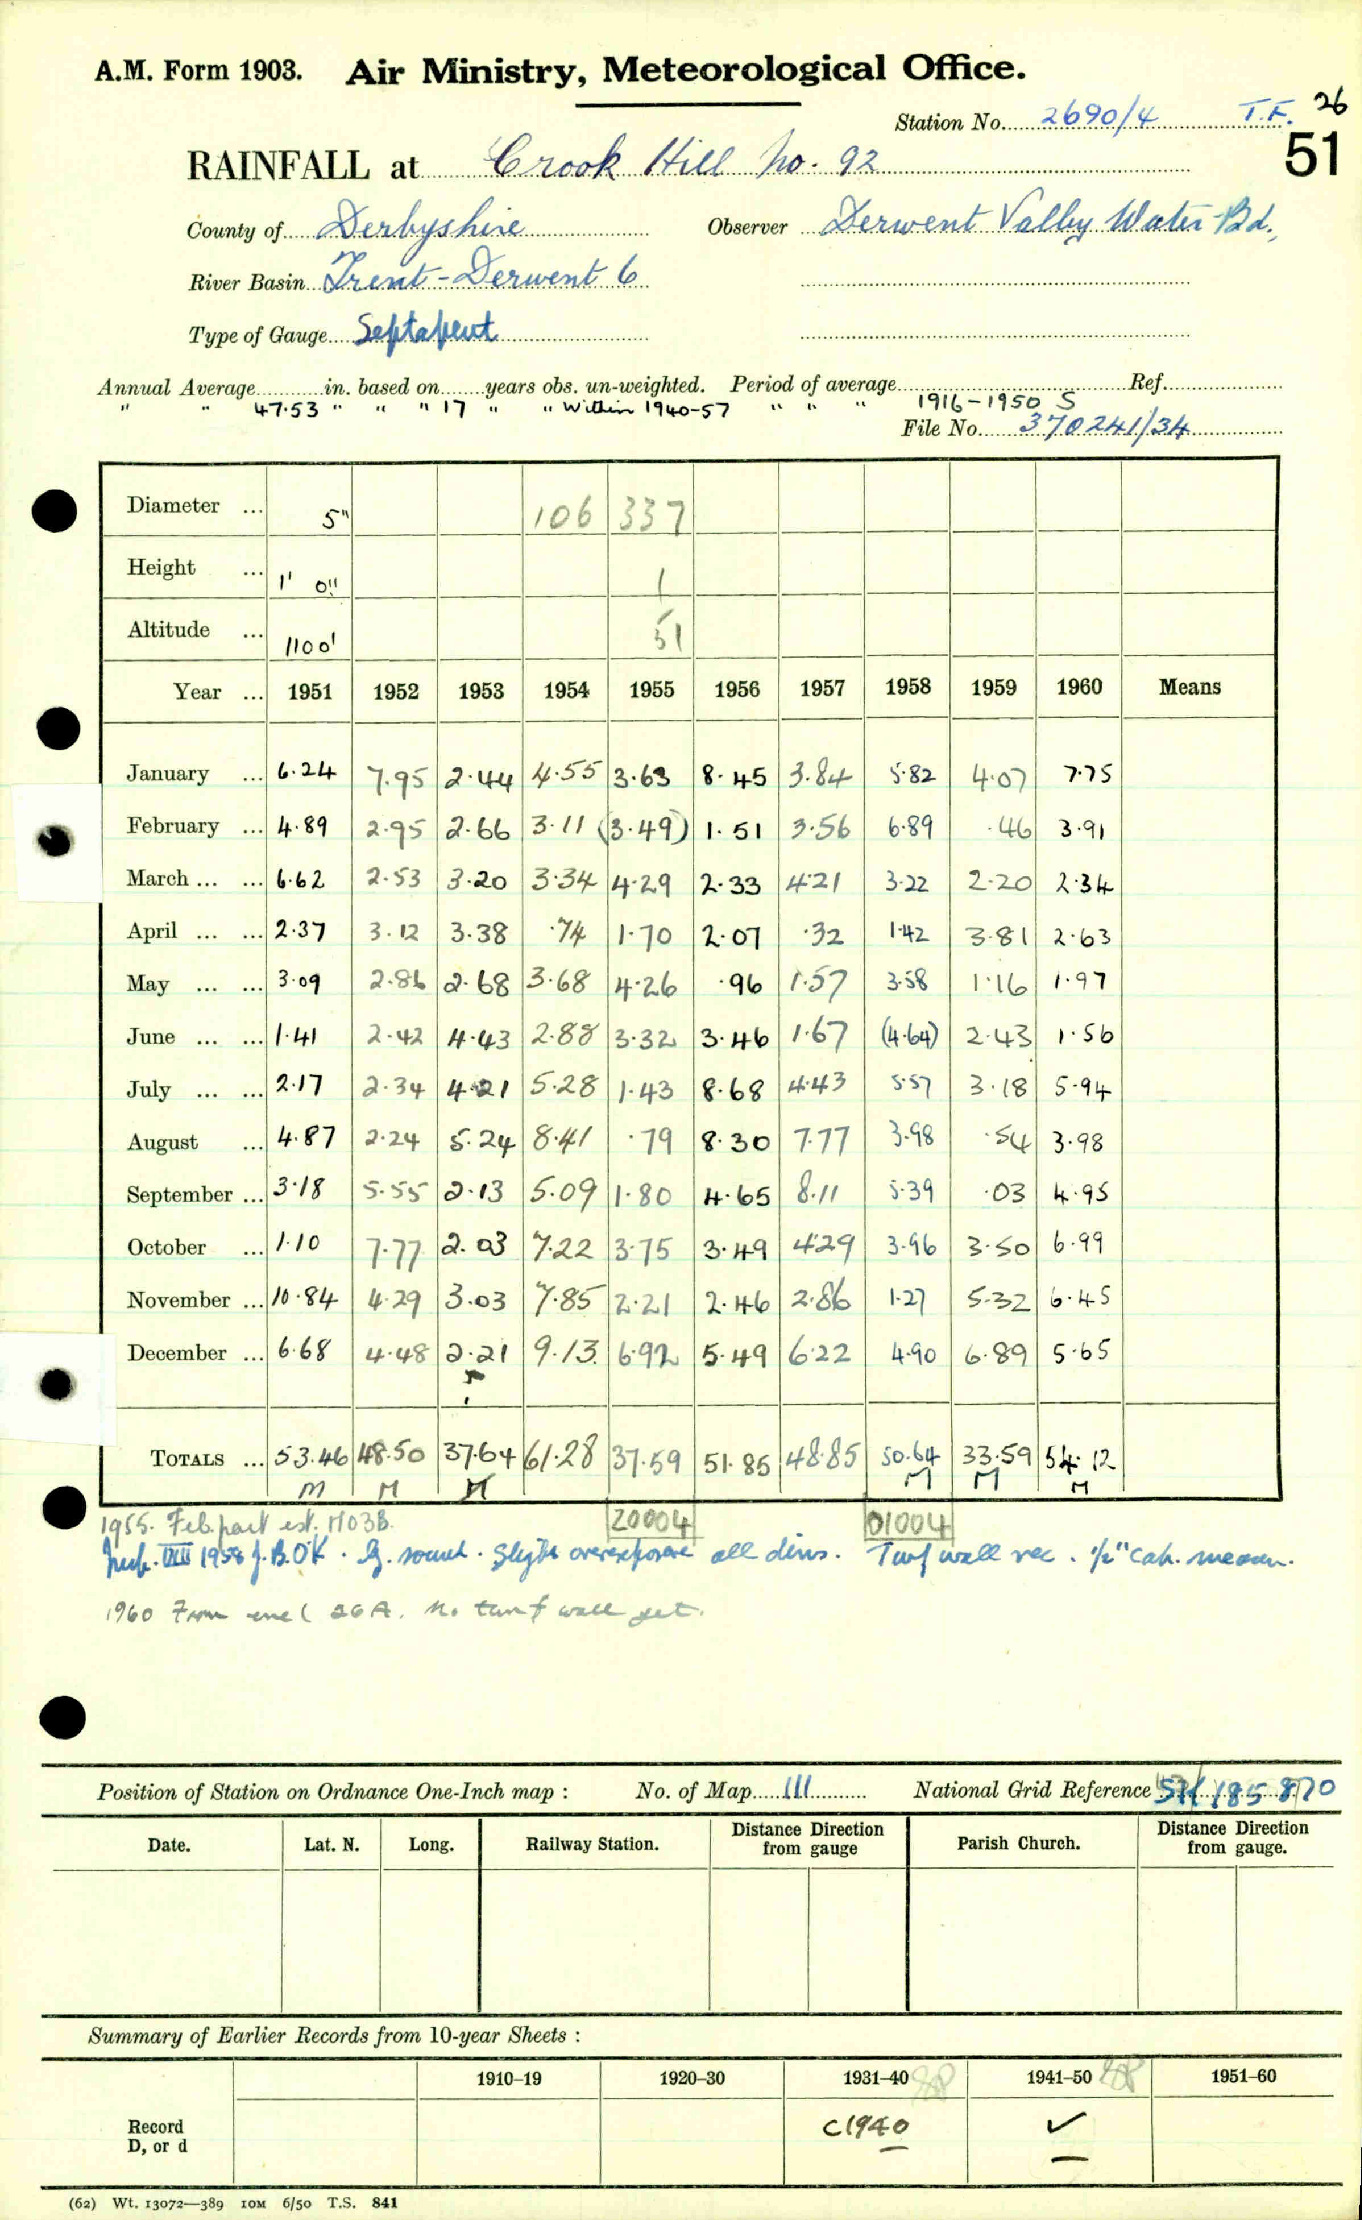 A.M. Form 1903. Air Ministry, Meteorological Office.
Station No. 2690/4 T.F. 26
51
RAINFALL at Crook Hill No. 92
County of Derbyshire Observer Derwent Valley Water Bd.
River Basin Trent-Derwent 6
Type of Gauge Septapent
Annual Average in. based on years obs. un-weighted. Period of average Ref.
" " 47.53 " " " 17 " " Within 1940-57 " " " 1916-1950 S
File No. 370241/34
Diameter ... 5" 106 337
Height ... 1' 0" 1
Altitude ... 1100' 51
Year ... 1951 1952 1953 1954 1955 1956 1957 1958 1959 1960 Means
January ... 6.24 7.95 2.44 4.55 3.63 8.45 3.84 5.82 4.07 7.75
February ... 4.89 2.95 2.66 3.11 (3.49) 1.51 3.56 6.89 .46 3.91
March ... ... 6.62 2.53 3.20 3.34 4.29 2.33 4.21 3.22 2.20 2.34
April ... ... 2.37 3.12 3.38 .74 1.70 2.07 .32 1.42 3.81 2.63
May ... ... 3.09 2.86 2.68 3.68 4.26 .96 1.57 3.58 1.16 1.97
June ... ... 1.41 2.42 4.43 2.88 3.32 3.46 1.67 (4.64) 2.43 1.56
July ... ... 2.17 2.34 4.21 5.28 1.43 8.68 4.43 5.57 3.18 5.94
August ... 4.87 2.24 5.24 8.41 .79 8.30 7.77 3.98 .54 3.98
September ... 3.18 5.55 2.13 5.09 1.80 4.65 8.11 5.39 .03 4.95
October ... 1.10 7.77 2.03 7.22 3.75 3.49 4.29 3.96 3.50 6.99
November ... 10.84 4.29 3.03 7.85 2.21 2.46 2.86 1.27 5.32 6.45
December ... 6.68 4.48 2.21 9.13 6.92 5.49 6.22 4.90 6.89 5.65
TOTALS ... 53.46 48.50 37.64 61.28 37.59 51.85 48.85 50.64 33.59 54.12
M M M M M M
1955. Feb. part est. MO3B. 20004 01004
Insp. VIII 1958 J.B. OK. G. sound. Slight overexposure all dirns. Turf wall rec. 1/2" cap. measure.
1960 From 26A. No turf wall yet.
Position of Station on Ordnance One-Inch map : No. of Map 111 National Grid Reference SK 185 870
Date. Lat. N. Long. Railway Station. Distance Direction from gauge Parish Church. Distance Direction from gauge.
Summary of Earlier Records from 10-year Sheets :
1910–19 1920–30 1931–40 1941–50 1951–60
Record D, or d C1940 ✓
(62) Wt. 13072—389 10M 6/50 T.S. 841